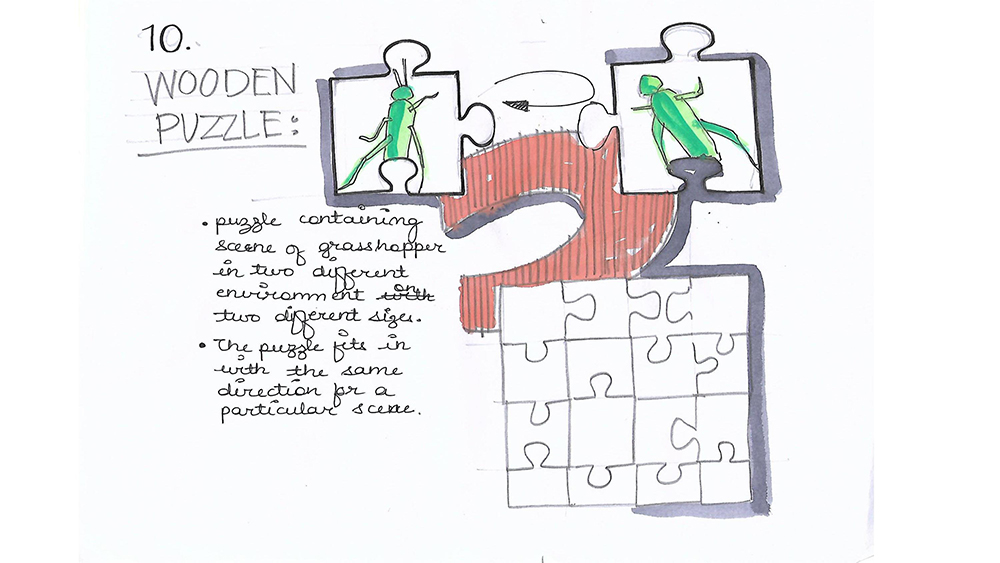 10.
WOODEN
PUZZLE:
• puzzle containing
scene of grasshopper
in two different
environment with on
two different sizes.
• The puzzle fits in
with the same
direction for a
particular scene.